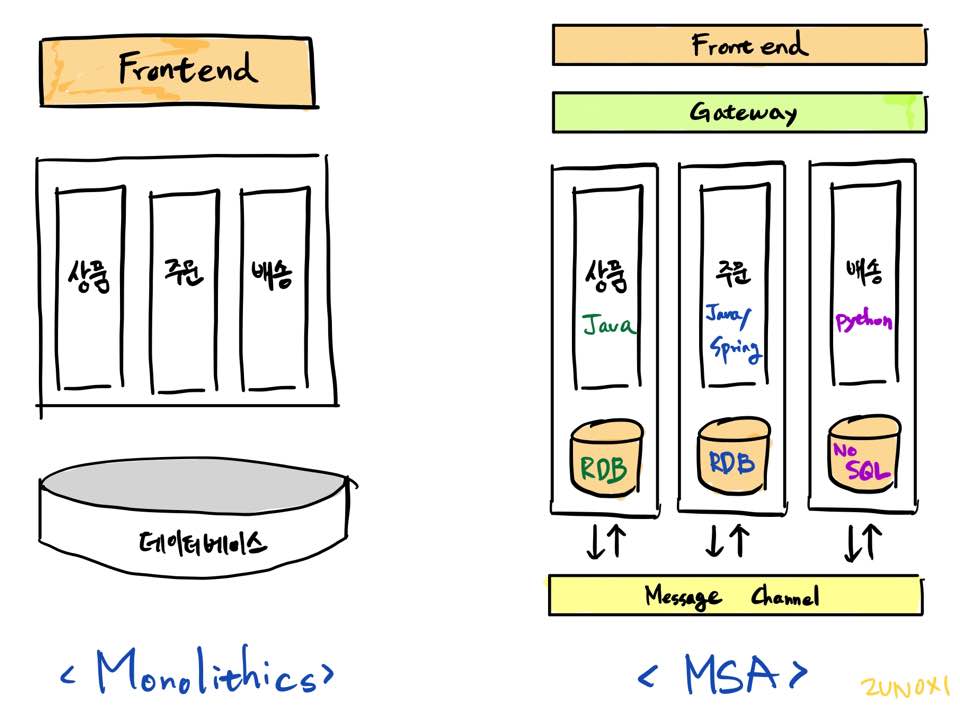 Frontend
상품
주문
배송
데이터베이스
< Monolithics >
Frontend
Gateway
상품
Java
주문
Java/
Spring
배송
python
RDB
RDB
No
SQL
Message Channel
< MSA >
ZUNOXI